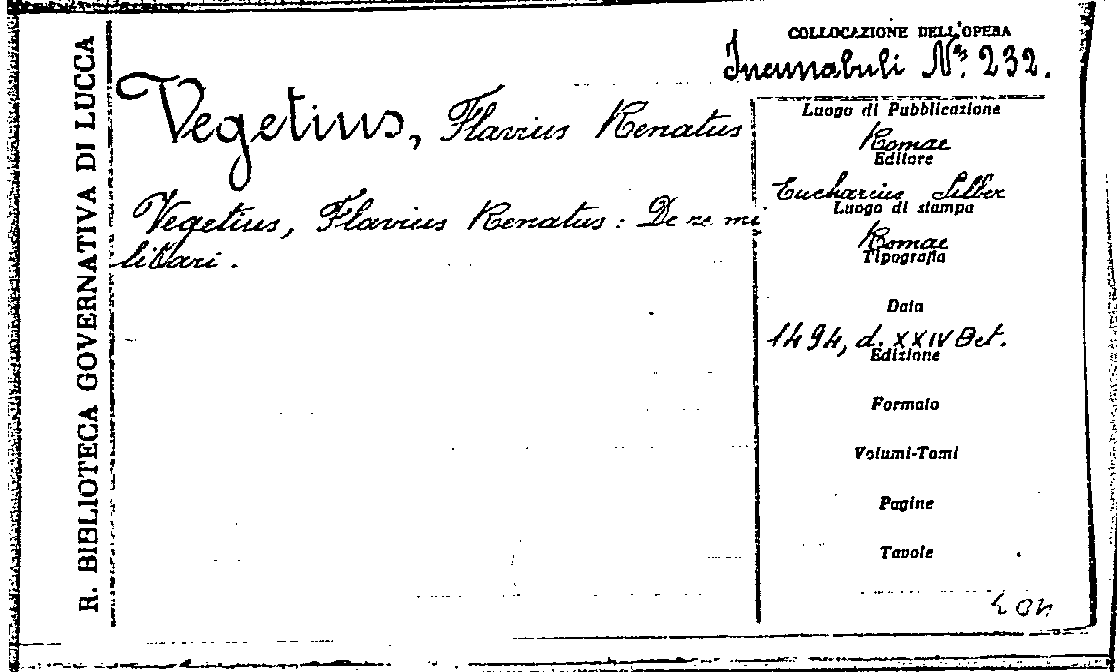 R. BIBLIOTECA GOVERNATIVA DI LUCCA
COLLOCAZIONE DELL'OPERA
Incunabuli N.º 232.
Vegetius, Flavius Renatus
Vegetius, Flavius Renatus: De re mi
litari.
Luogo di Pubblicazione
Romae
Editore
Eucharius Silber
Luogo di stampa
Romae
Tipografia
Data
1494, d. XXIV Oct.
Edizione
Formato
Volumi-Tomi
Pagine
Tavole